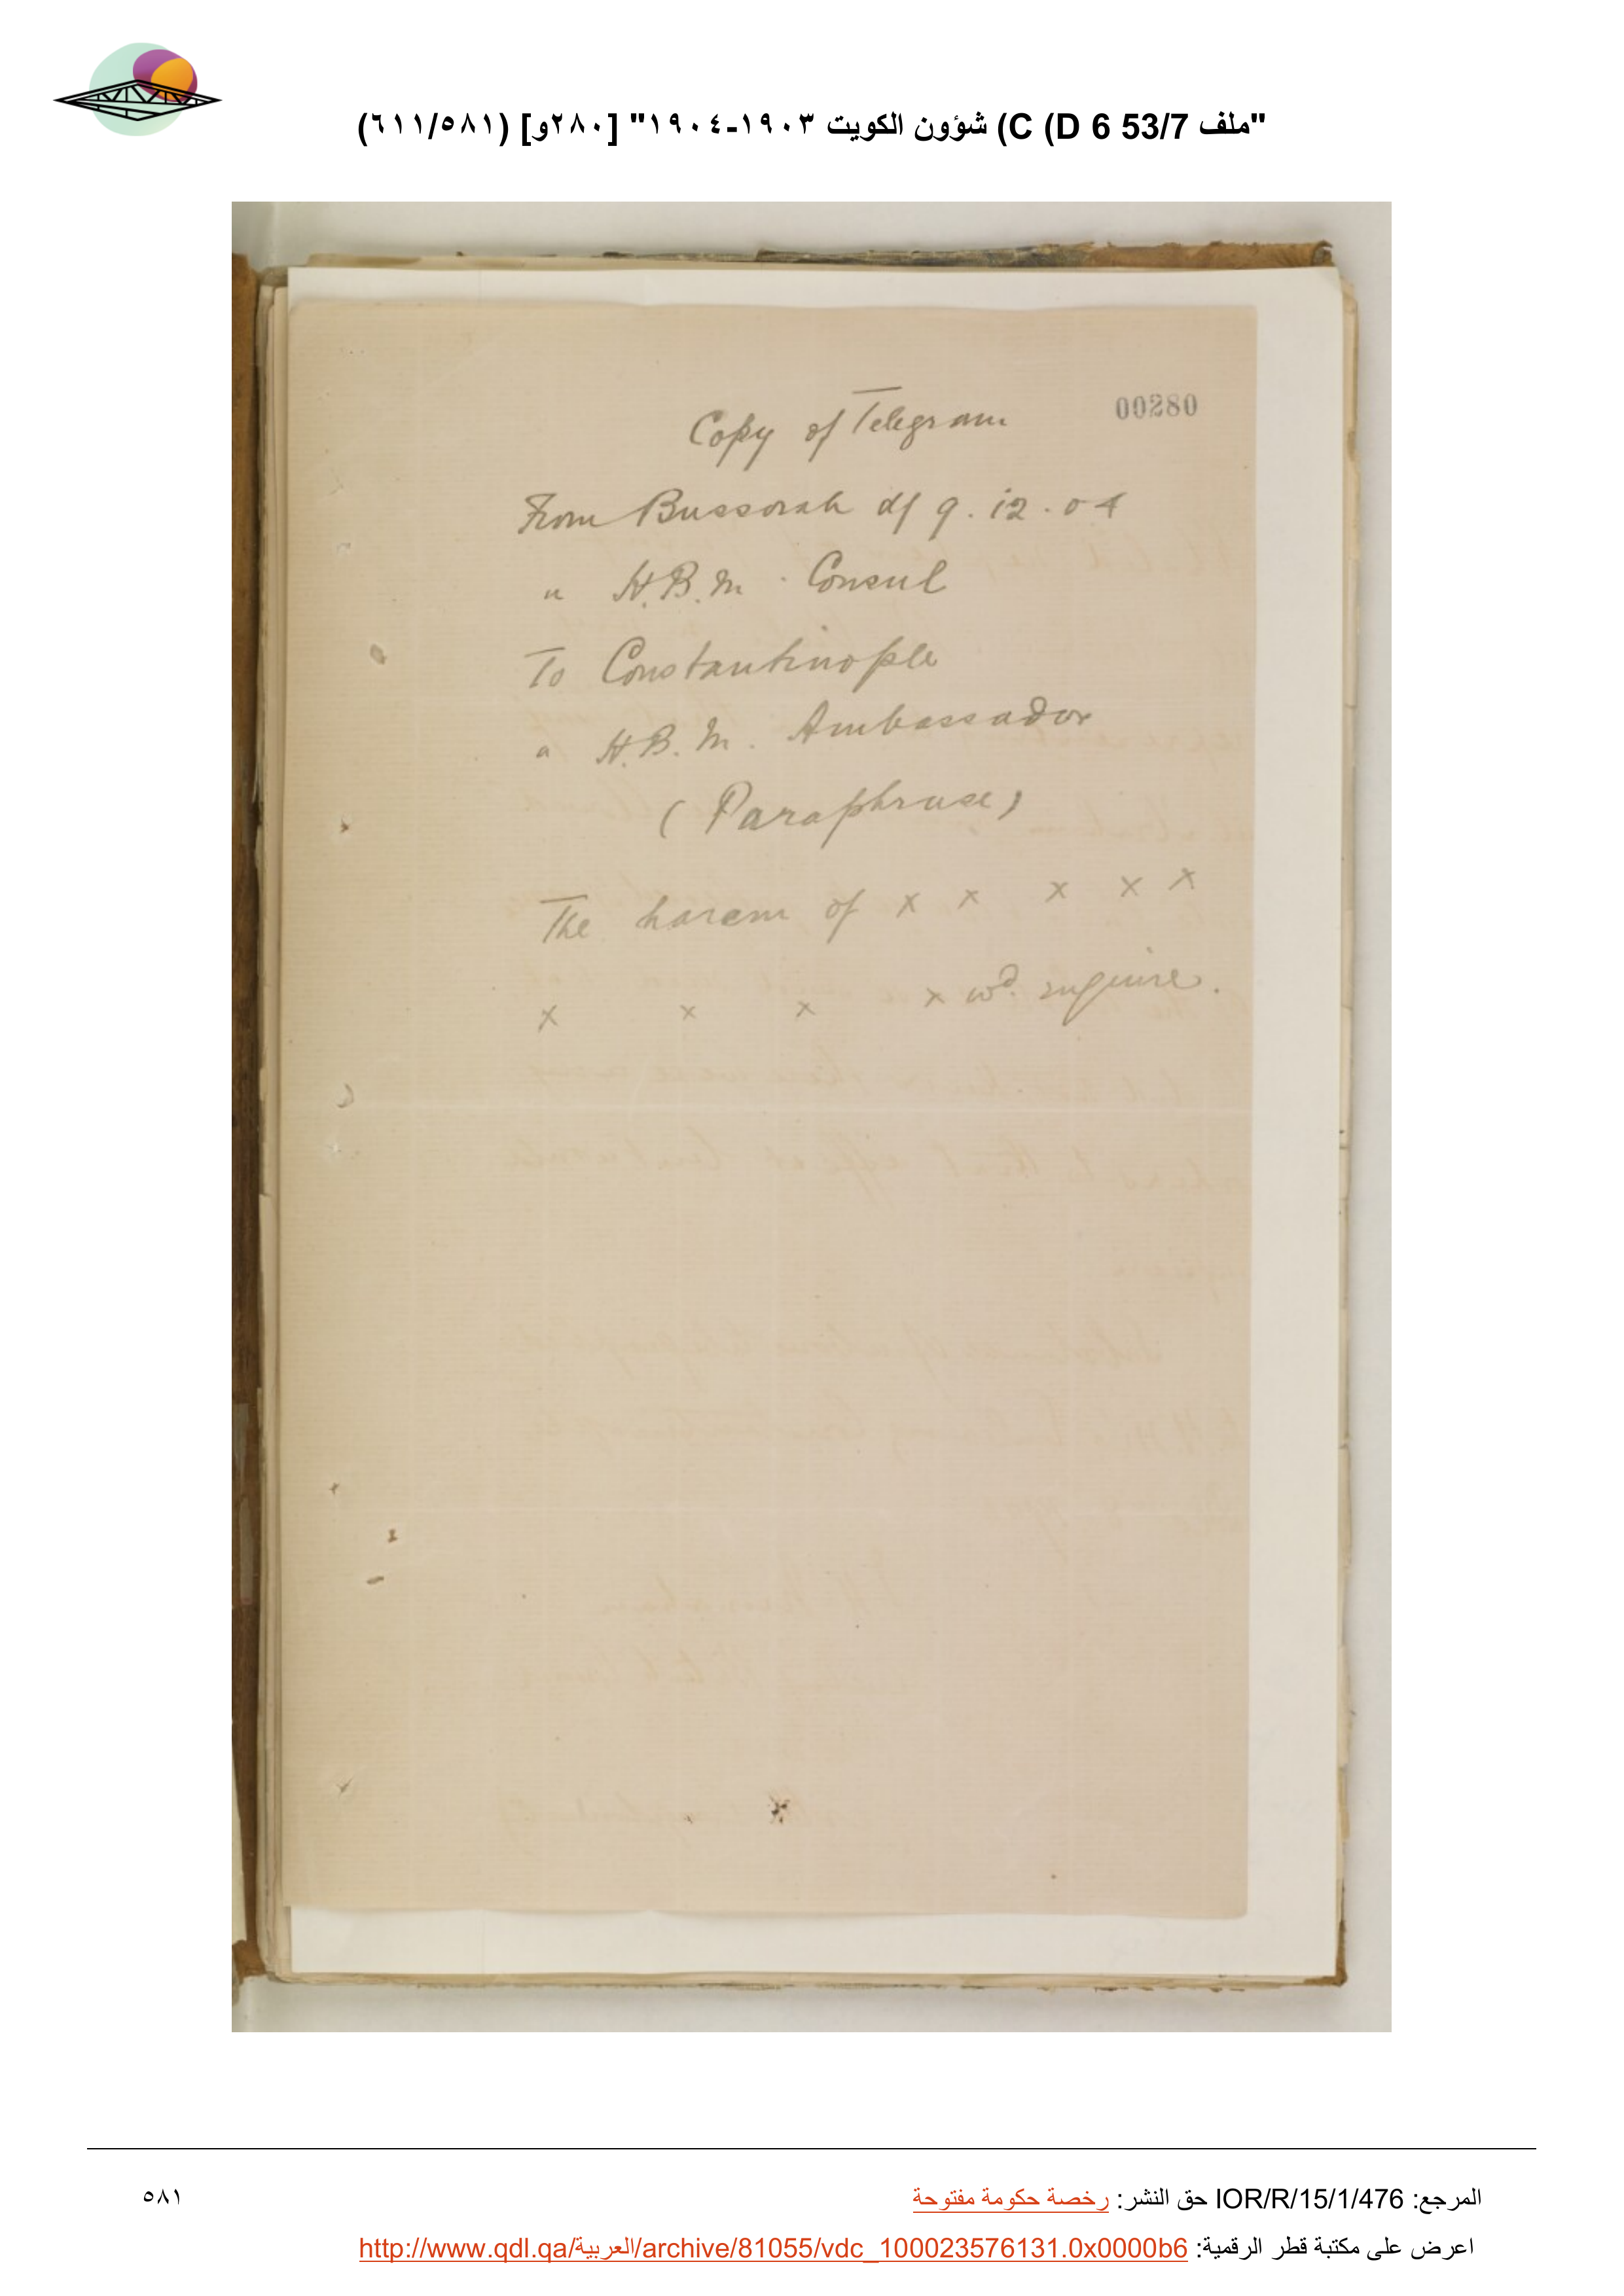 "ملف 53/7 C (D 6) شؤون الكويت ١٩٠٣-١٩٠٤" [٢٨٠و] (٦١١/٥٨١)
00280
Copy of Telegram
From Bussorah d/ 9.12.04
" H.B.M. Consul
To Constantinople
" H.B.M. Ambassador
(Paraphrase)
The harem of x x x x x
x x x x wd. enquire.
المرجع: IOR/R/15/1/476 حق النشر: رخصة حكومة مفتوحة
٥٨١
اعرض على مكتبة قطر الرقمية: http://www.qdl.qa/العربية/archive/81055/vdc_100023576131.0x0000b6